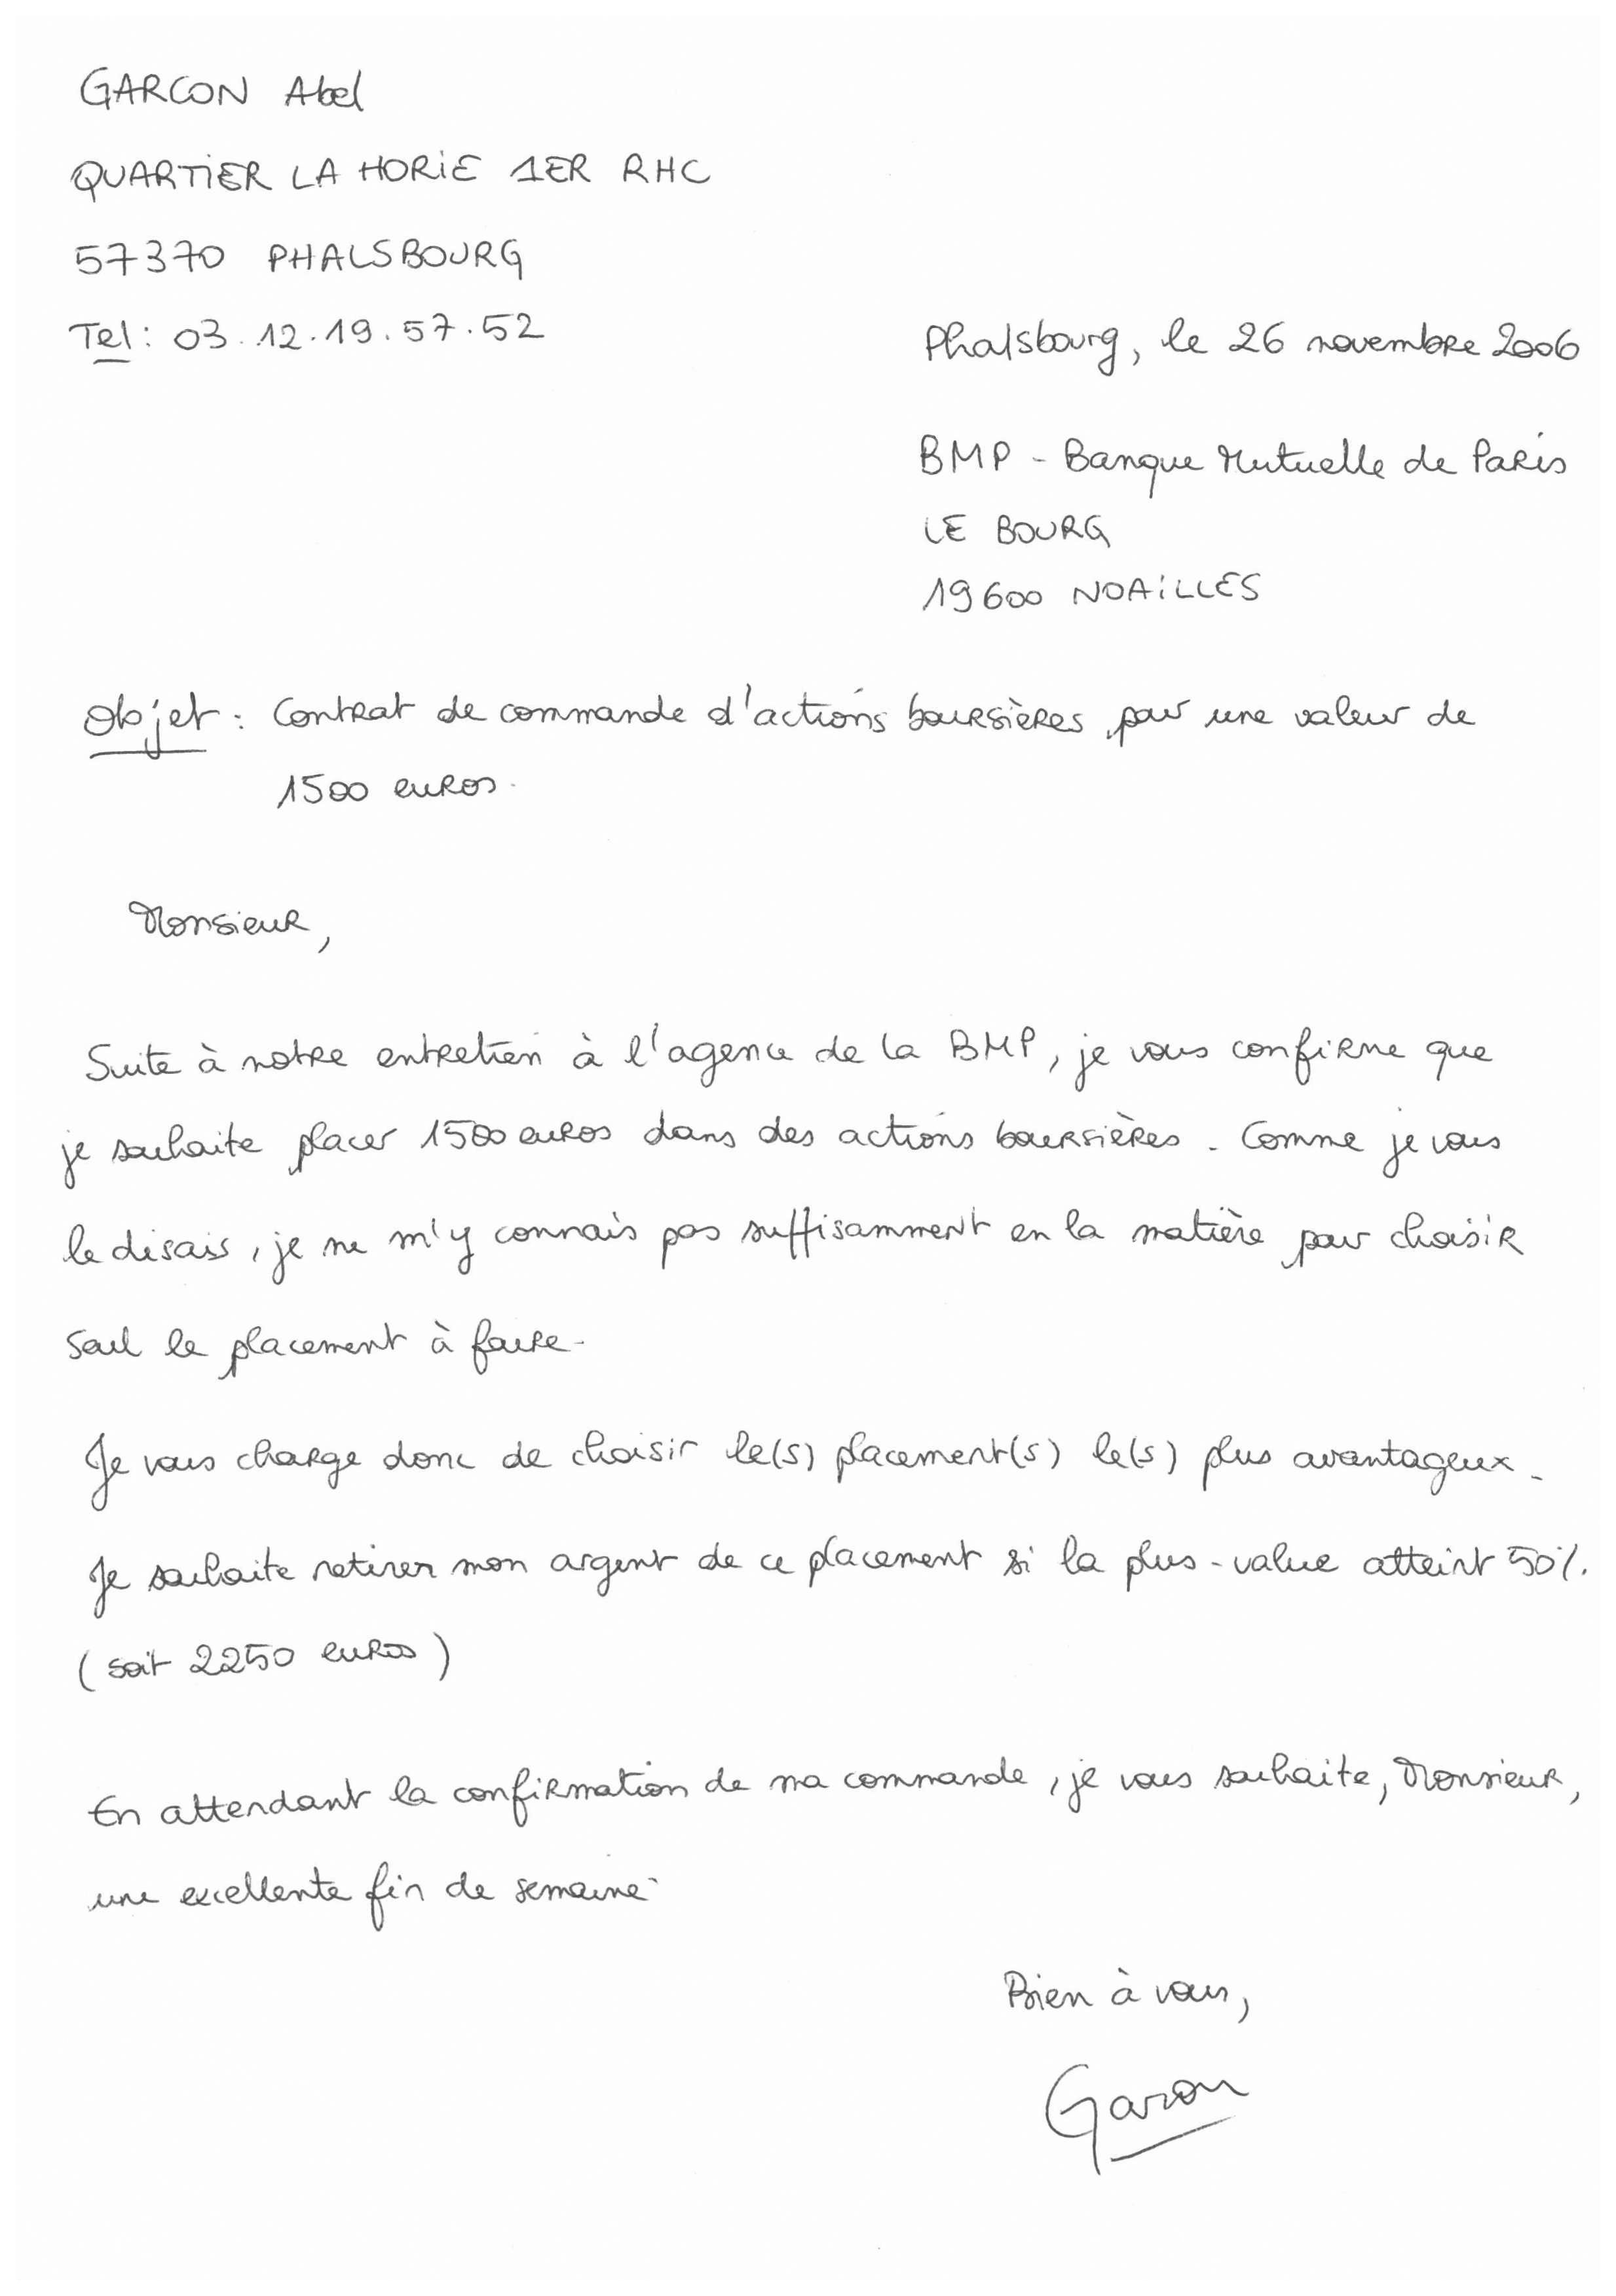 GARCON Abel
QUARTIER LA HORIE 1ER RHC
57370 PHALSBOURG
Tel: 03.12.19.57.52
Phalsbourg, le 26 novembre 2006
BMP - Banque Mutuelle de Paris
LE BOURG
19600 NOAILLES
Objet : Contrat de commande d'actions boursières, pour une valeur de
1500 euros.
Monsieur,
Suite à notre entretien à l'agence de la BMP, je vous confirme que
je souhaite placer 1500 euros dans des actions boursières. Comme je vous
le disais, je ne m'y connais pas suffisamment en la matière pour choisir
seul le placement à faire.
Je vous charge donc de choisir le(s) placement(s) le(s) plus avantageux.
Je souhaite retirer mon argent de ce placement si la plus-value atteint 50%.
(soit 2250 euros)
En attendant la confirmation de ma commande, je vous souhaite, Monsieur,
une excellente fin de semaine.
Bien à vous,
Garcon